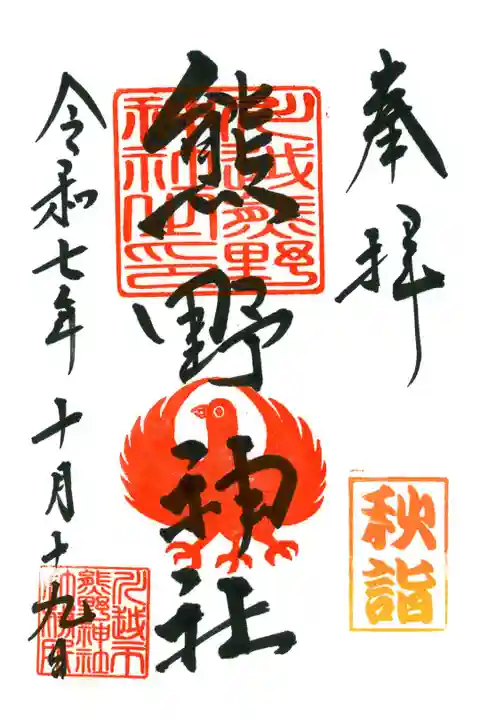 奉拝
秋詣
川越熊野
神社
熊野神社
令和七年十月十九日
川越市
熊野神社